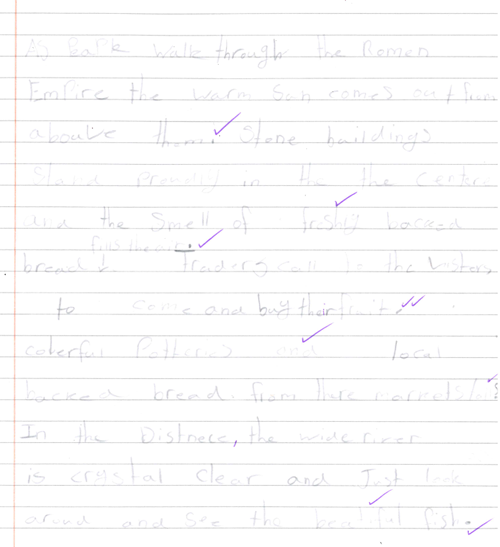 As Bapk walk through the Romen
Empire the warm Sun comes out from
above them. Stone buildings
Stand proudly in the the certere
and the Smell of freshly backed
fills the air.
bread Traders call to the
to come and buy their fruit.
coberful Potteries and local
backed bread. from there markets
In the Distnece, the wide river
is crystal clear and Just look
arund and See the beatiful fish.